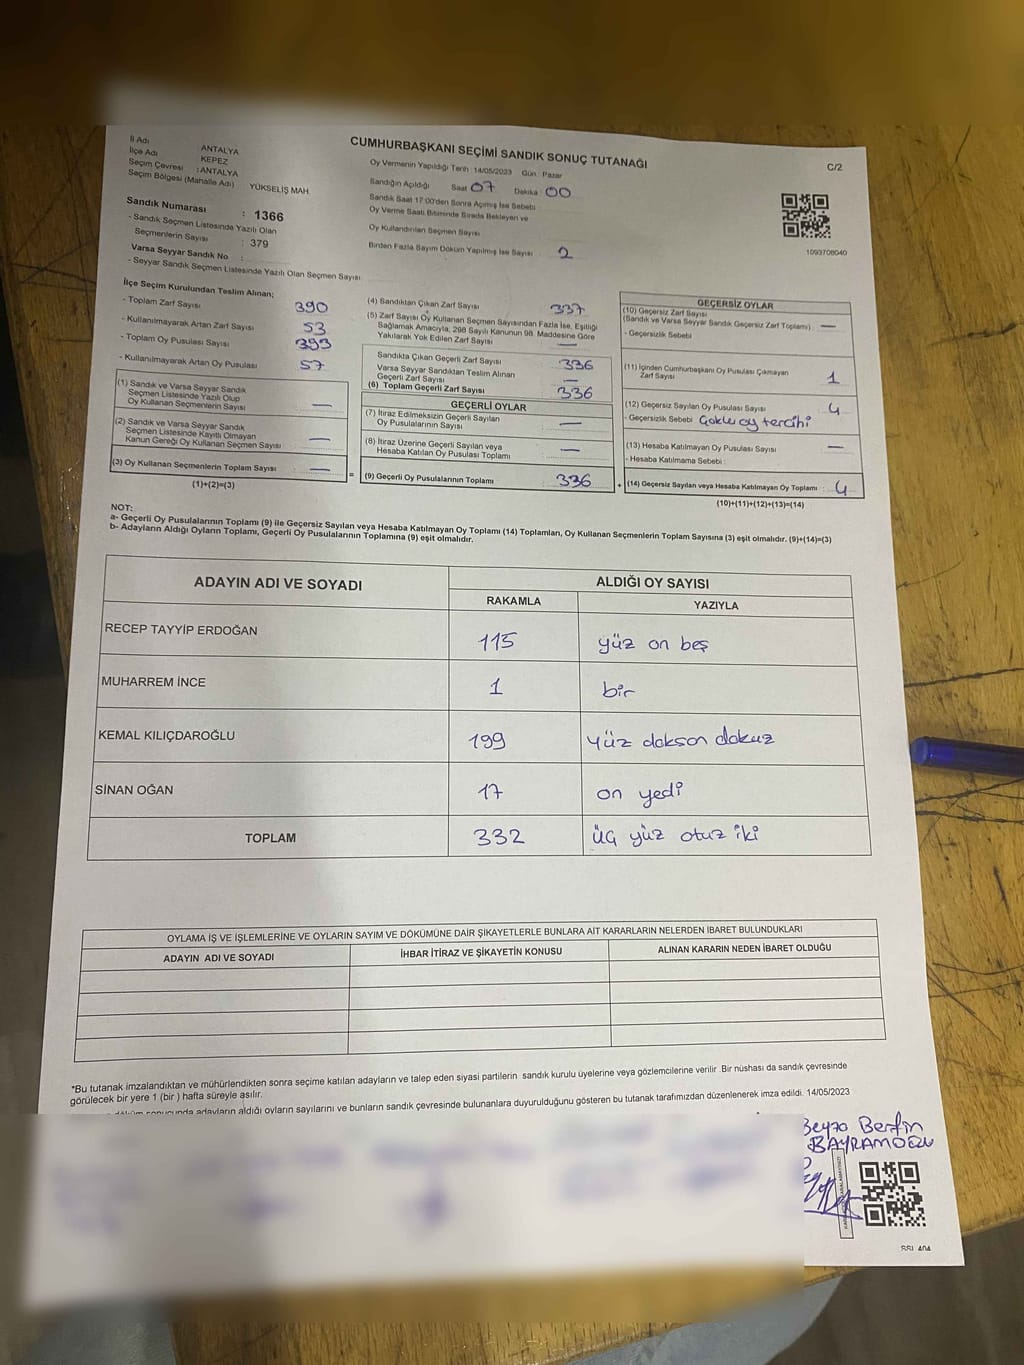 CUMHURBAŞKANI SEÇİMİ SANDIK SONUÇ TUTANAĞI
C/2
İl Adı : ANTALYA
İlçe Adı : KEPEZ
Seçim Çevresi : ANTALYA
Seçim Bölgesi (Mahalle Adı) YÜKSELİŞ MAH.
Sandık Numarası : 1366
- Sandık Seçmen Listesinde Yazılı Olan
Seçmenlerin Sayısı : 379
Varsa Seyyar Sandık No :
- Seyyar Sandık Seçmen Listesinde Yazılı Olan Seçmen Sayısı
Oy Vermenin Yapıldığı Tarih :14/05/2023 Gün : Pazar
Sandığın Açıldığı Saat 07 Dakika 00
Sandık Saat 17:00'den Sonra Açılmış İse Sebebi
Oy Verme Saati Bitiminde Sırada Bekleyen ve
Oy Kullandırılan Seçmen Sayısı
Birden Fazla Sayım Döküm Yapılmış İse Sayısı 2
1093708040
İlçe Seçim Kurulundan Teslim Alınan;
- Toplam Zarf Sayısı 390
- Kullanılmayarak Artan Zarf Sayısı 53
- Toplam Oy Pusulası Sayısı 393
- Kullanılmayarak Artan Oy Pusulası 57
(1) Sandık ve Varsa Seyyar Sandık
Seçmen Listesinde Yazılı Olup
Oy Kullanan Seçmenlerin Sayısı —
(2) Sandık ve Varsa Seyyar Sandık
Seçmen Listesinde Kayıtlı Olmayan
Kanun Gereği Oy Kullanan Seçmen Sayısı —
(3) Oy Kullanan Seçmenlerin Toplam Sayısı —
(1)+(2)=(3)
(4) Sandıktan Çıkan Zarf Sayısı 337
(5) Zarf Sayısı Oy Kullanan Seçmen Sayısından Fazla İse, Eşitliği
Sağlamak Amacıyla, 298 Sayılı Kanunun 98. Maddesine Göre
Yakılarak Yok Edilen Zarf Sayısı —
Sandıkta Çıkan Geçerli Zarf Sayısı 336
Varsa Seyyar Sandıktan Teslim Alınan
Geçerli Zarf Sayısı —
(6) Toplam Geçerli Zarf Sayısı 336
GEÇERLİ OYLAR
(7) İtiraz Edilmeksizin Geçerli Sayılan
Oy Pusulalarının Sayısı —
(8) İtiraz Üzerine Geçerli Sayılan veya
Hesaba Katılan Oy Pusulası Toplamı —
= (9) Geçerli Oy Pusulalarının Toplamı 336
GEÇERSİZ OYLAR
(10) Geçersiz Zarf Sayısı
(Sandık ve Varsa Seyyar Sandık Geçersiz Zarf Toplamı) : —
- Geçersizlik Sebebi
(11) İçinden Cumhurbaşkanı Oy Pusulası Çıkmayan
Zarf Sayısı 1
(12) Geçersiz Sayılan Oy Pusulası Sayısı 4
- Geçersizlik Sebebi Çoklu oy tercihi
(13) Hesaba Katılmayan Oy Pusulası Sayısı —
- Hesaba Katılmama Sebebi :
+ (14) Geçersiz Sayılan veya Hesaba Katılmayan Oy Toplamı : 4
(10)+(11)+(12)+(13)=(14)
NOT:
a- Geçerli Oy Pusulalarının Toplamı (9) ile Geçersiz Sayılan veya Hesaba Katılmayan Oy Toplamı (14) Toplamları, Oy Kullanan Seçmenlerin Toplam Sayısına (3) eşit olmalıdır. (9)+(14)=(3)
b- Adayların Aldığı Oyların Toplamı, Geçerli Oy Pusulalarının Toplamına (9) eşit olmalıdır.
ADAYIN ADI VE SOYADI ALDIĞI OY SAYISI
RAKAMLA YAZIYLA
RECEP TAYYİP ERDOĞAN 115 yüz on beş
MUHARREM İNCE 1 bir
KEMAL KILIÇDAROĞLU 199 yüz dokson dokuz
SİNAN OĞAN 17 on yedi
TOPLAM 332 üç yüz otuz iki
OYLAMA İŞ VE İŞLEMLERİNE VE OYLARIN SAYIM VE DÖKÜMÜNE DAİR ŞİKAYETLERLE BUNLARA AİT KARARLARIN NELERDEN İBARET BULUNDUKLARI
ADAYIN ADI VE SOYADI İHBAR İTİRAZ VE ŞİKAYETİN KONUSU ALINAN KARARIN NEDEN İBARET OLDUĞU
*Bu tutanak imzalandıktan ve mühürlendikten sonra seçime katılan adayların ve talep eden siyasi partilerin sandık kurulu üyelerine veya gözlemcilerine verilir. Bir nüshası da sandık çevresinde
görülecek bir yere 1 (bir ) hafta süreyle asılır.
sonucunda adayların aldığı oyların sayılarını ve bunların sandık çevresinde bulunanlara duyurulduğunu gösteren bu tutanak tarafımızdan düzenlenerek imza edildi. 14/05/2023
Beyza Berfin
BAYRAMOĞLU